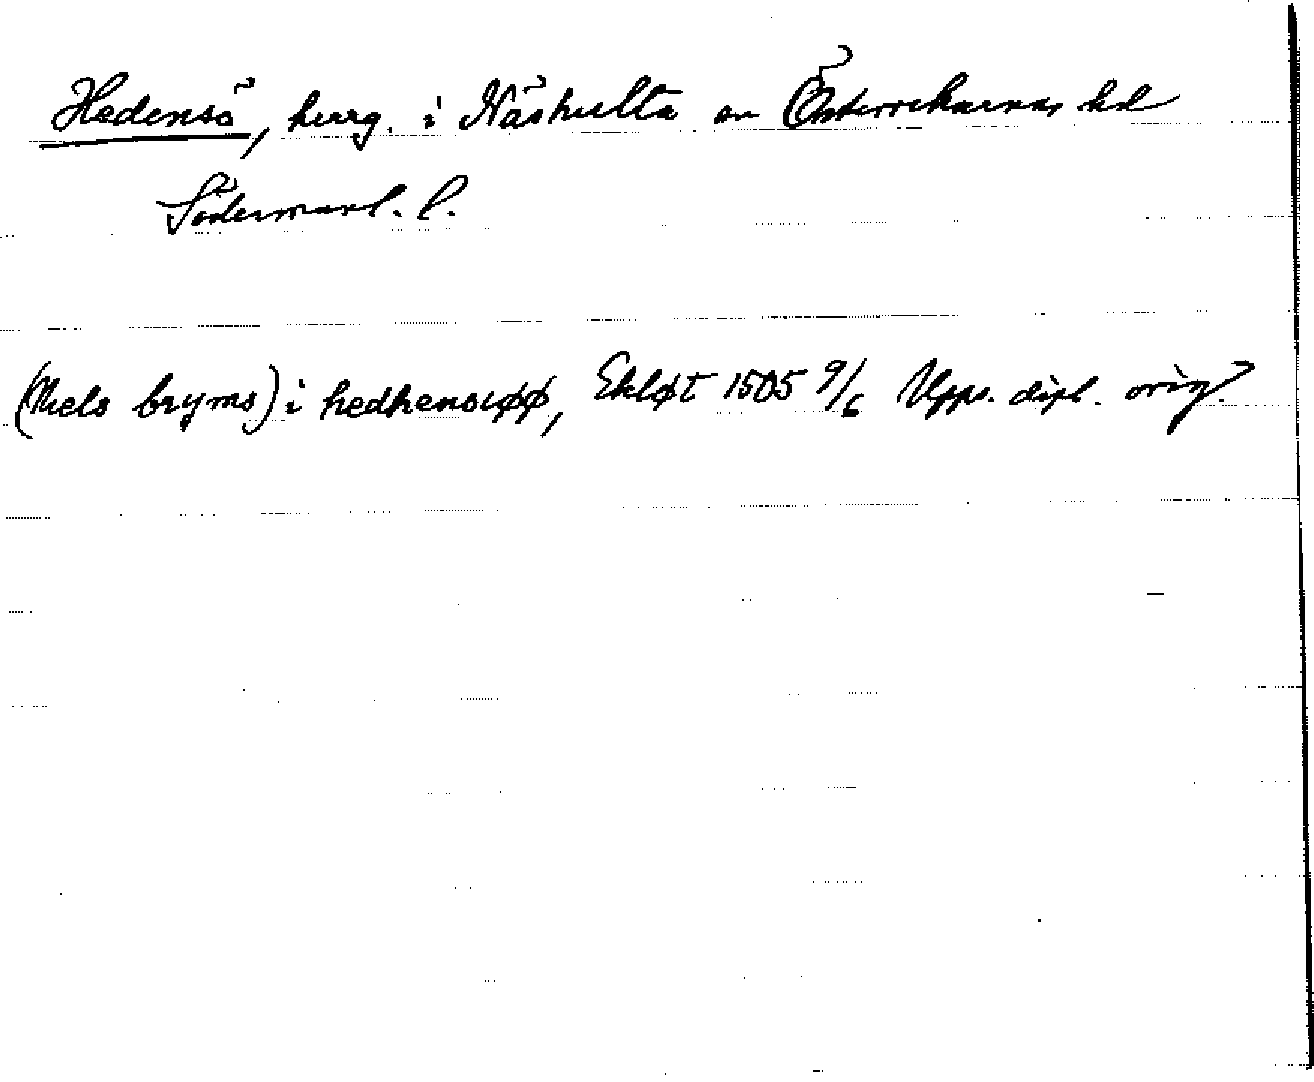 Hedensö, herrg. i Näshulta sn Österrekarnes hd
Södermanl. l.
(Niels bryms) i hedhensiøø, Ekløt 1505 9/6 Upps. dipl. orig.